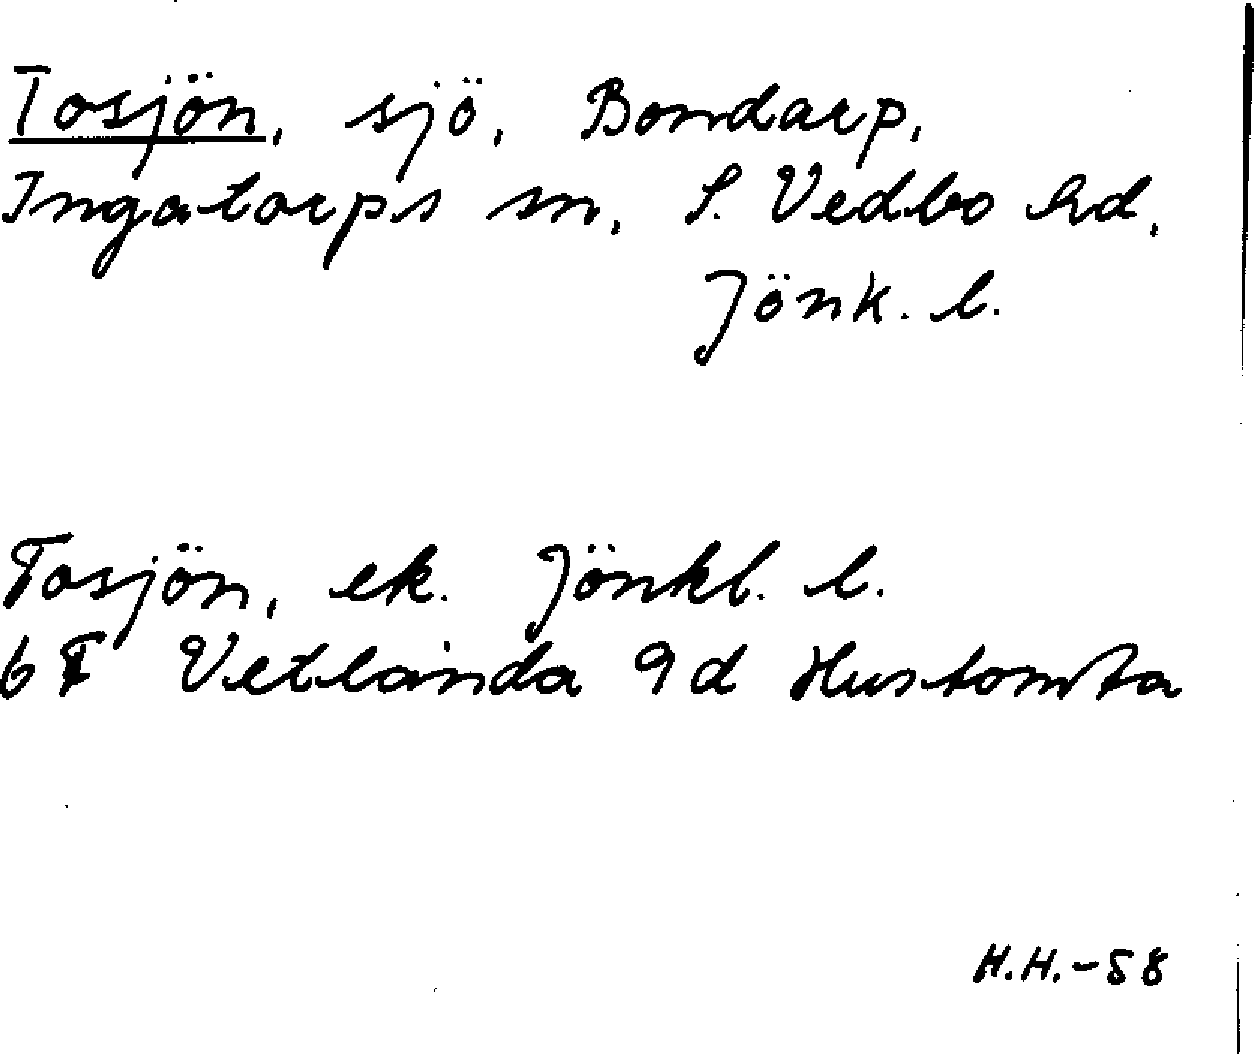 Tosjön, sjö, Bondarp,
Ingatorps sn, S. Vedbo hd,
Jönk. l.
Tosjön, ek. Jönkl. l.
6F Vetlanda 9d Hustomta
H.H.-58